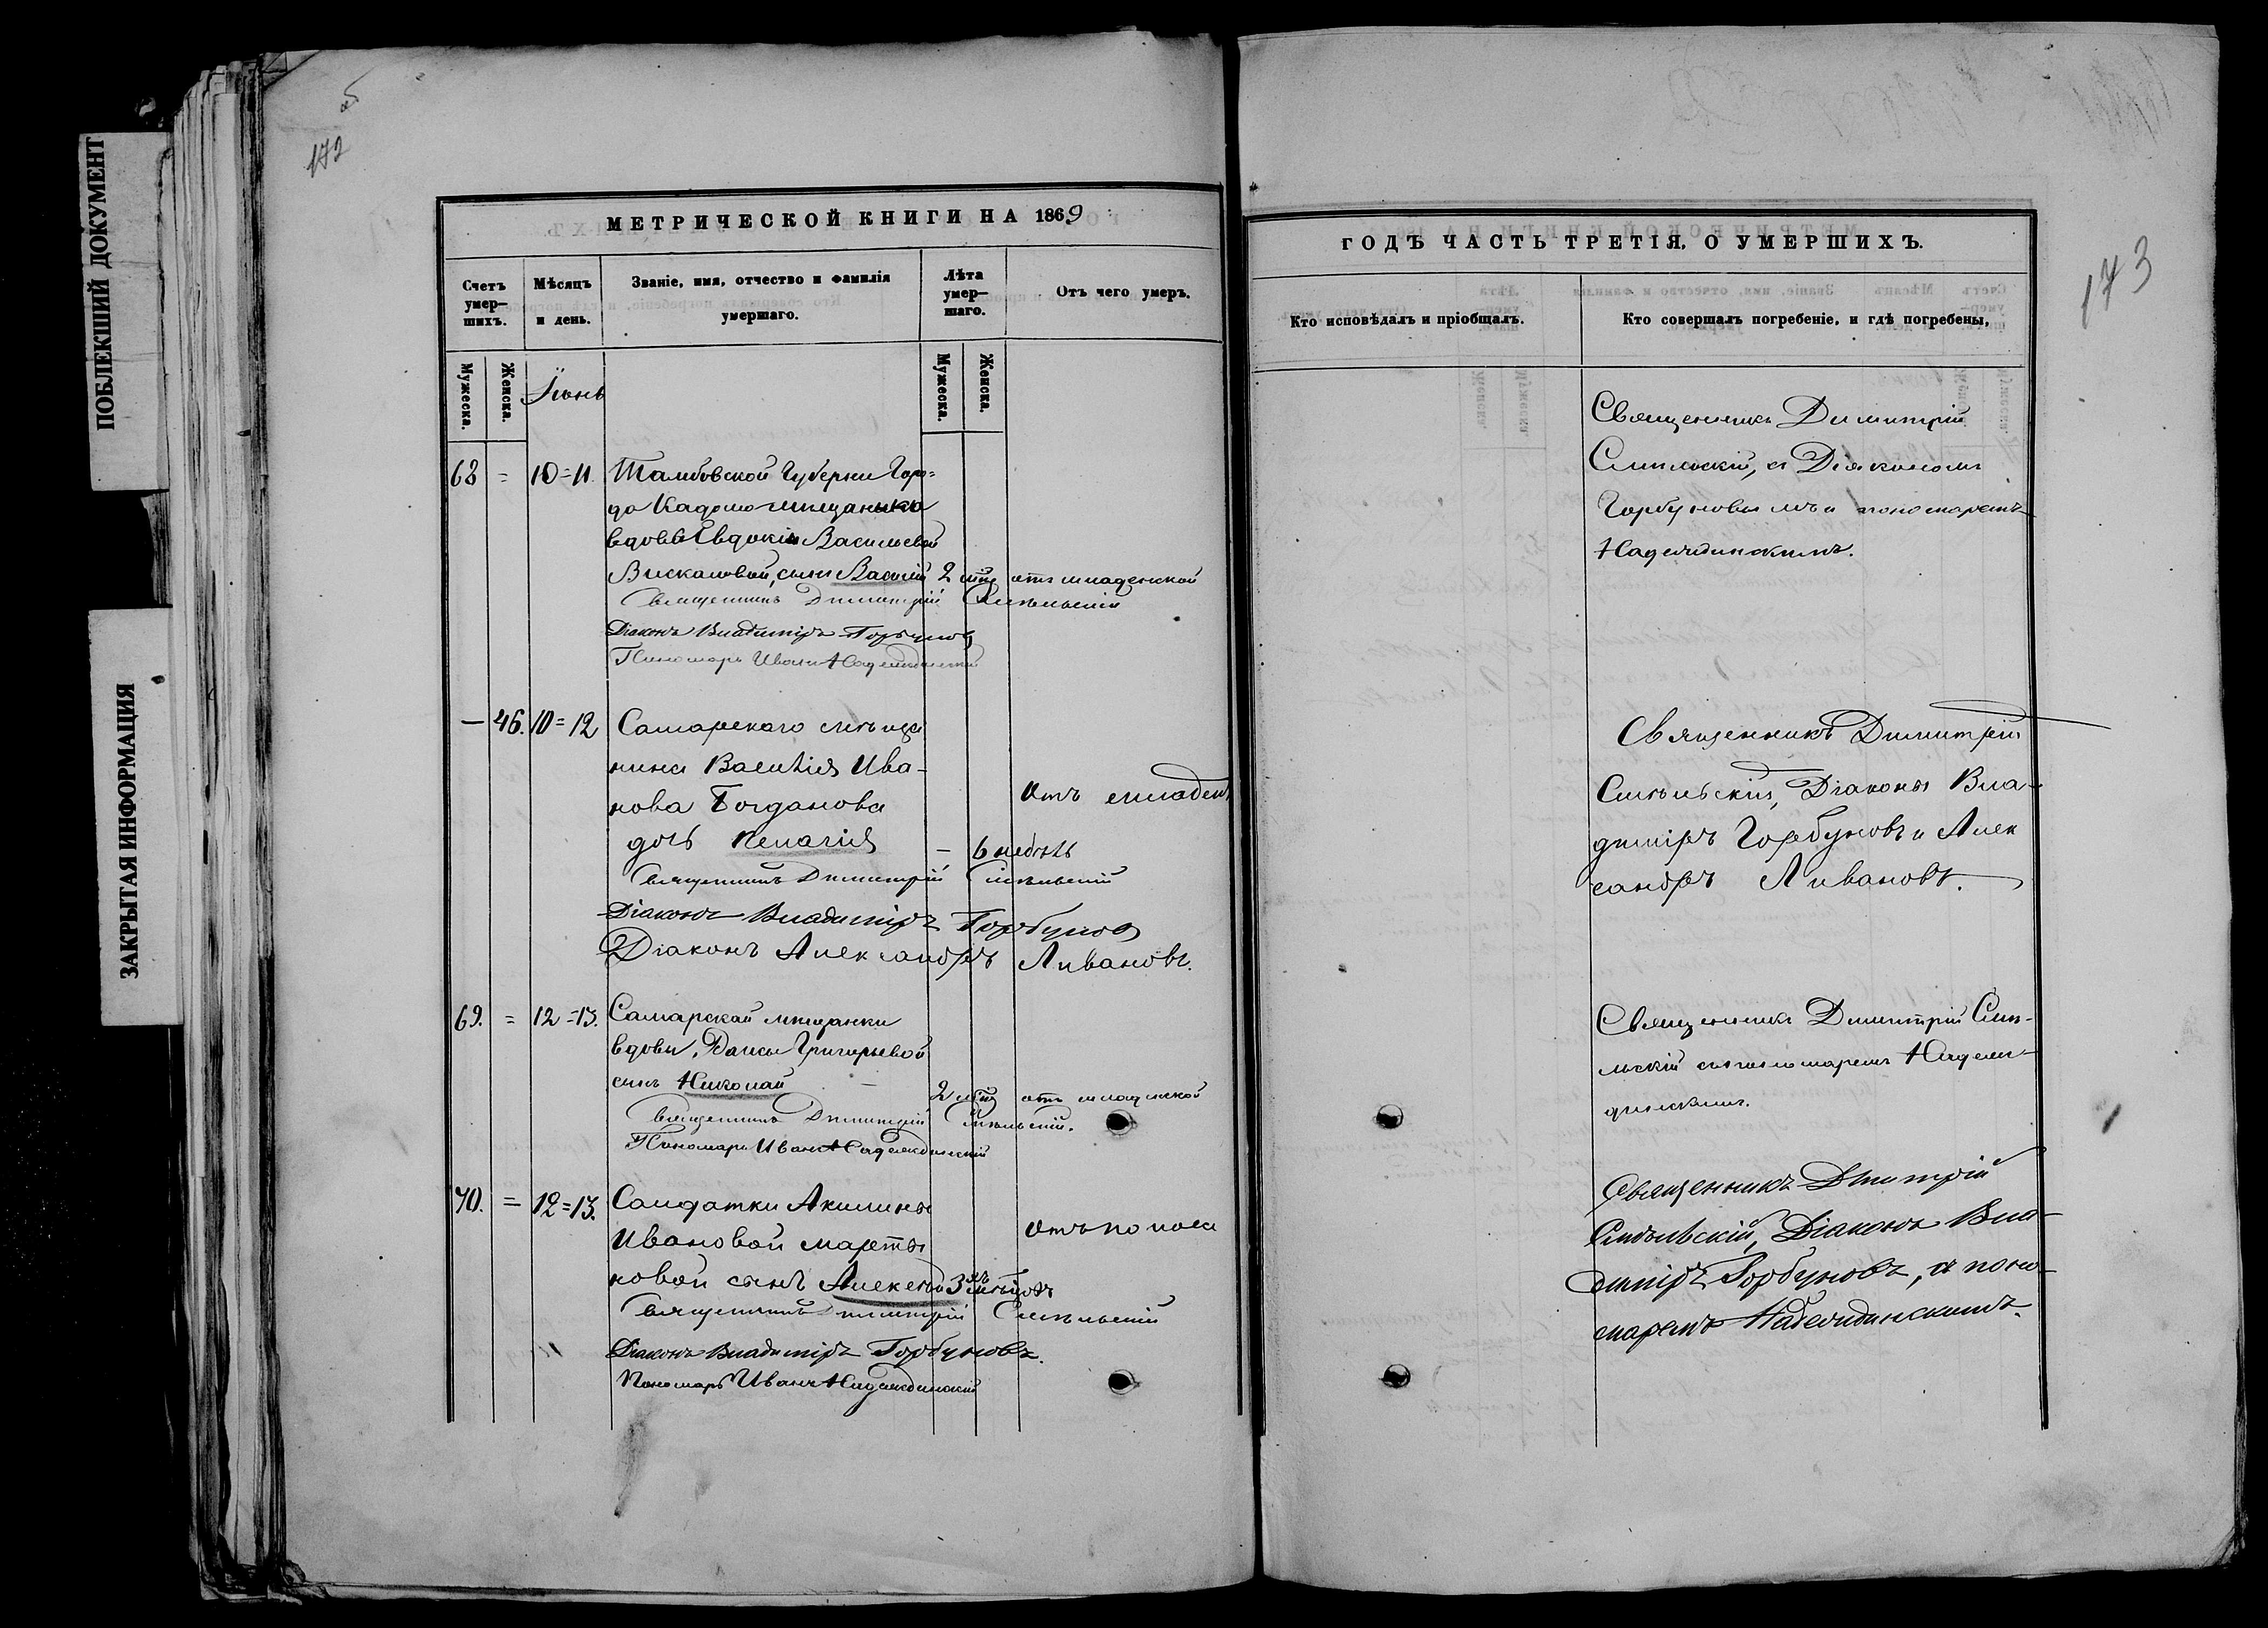 ПОБЛЕКШИЙ ДОКУМЕНТ
ЗАКРЫТАЯ ИНФОРМАЦИЯ
172
МЕТРИЧЕСКОЙ КНИГИ НА 1869
Счетъ умер-шихъ.
Мѣсяцъ и день.
Званіе, имя, отчество и фамилія умершаго.
Лѣта умер-шаго.
Отъ чего умеръ.
Мужеска.
Женска.
Мужеска.
Женска.
Іюнь
68 = 10=11. Тамбовской Губерніи Горо=
да Кадома
вдовы Евдокіи Васильевой
сынъ Василій 2 отъ младенской
Священникъ Димитрій Смѣльскій
Діаконъ Владиміръ Горбуновъ
Пономарь Иванъ Надеждинскій
— 46. 10=12 Самарскаго мѣща
нина Василія Ива-
нова Богданова
дочь Пелагія — 6 недѣль
Отъ младен
Священникъ Димитрій Смѣльскій
Діаконъ Владиміръ Горбуновъ
Діаконъ Александръ Ливановъ.
69. = 12=13. Самарской мѣщанки
вдовы Григорьевой
сынъ Николай — 2 отъ младенской
Священникъ Димитрій Смѣльскій.
Пономарь Иванъ Надеждинскій
70. = 12=13. Солдатки Акилины
Ивановой Марты
новой сынъ Алексѣй 3 мѣсяцовъ
Отъ поноса
Священникъ Димитрій Смѣльскій
Діаконъ Владиміръ Горбуновъ.
Пономарь Иванъ Надеждинскій
173
ГОДЪ ЧАСТЬ ТРЕТІЯ, О УМЕРШИХЪ.
Кто исповѣдалъ и пріобщалъ.
Кто совершалъ погребеніе, и гдѣ погребены,
Священникъ Димитрій
Смѣльскій, съ Діакономъ
Горбуновымъ и пономаремъ
Надеждинскимъ.
Священникъ Димитрій
Смѣльскій, Діаконы Вла-
диміръ Горбуновъ и Алек
сандръ Ливановъ.
Священникъ Димитрій Смѣ-
льскій съ пономаремъ Надеж-
динскимъ.
Священникъ Димитрій
Смѣльскій, Діаконъ Вла-
диміръ Горбуновъ, съ поно-
маремъ Надеждинскимъ.